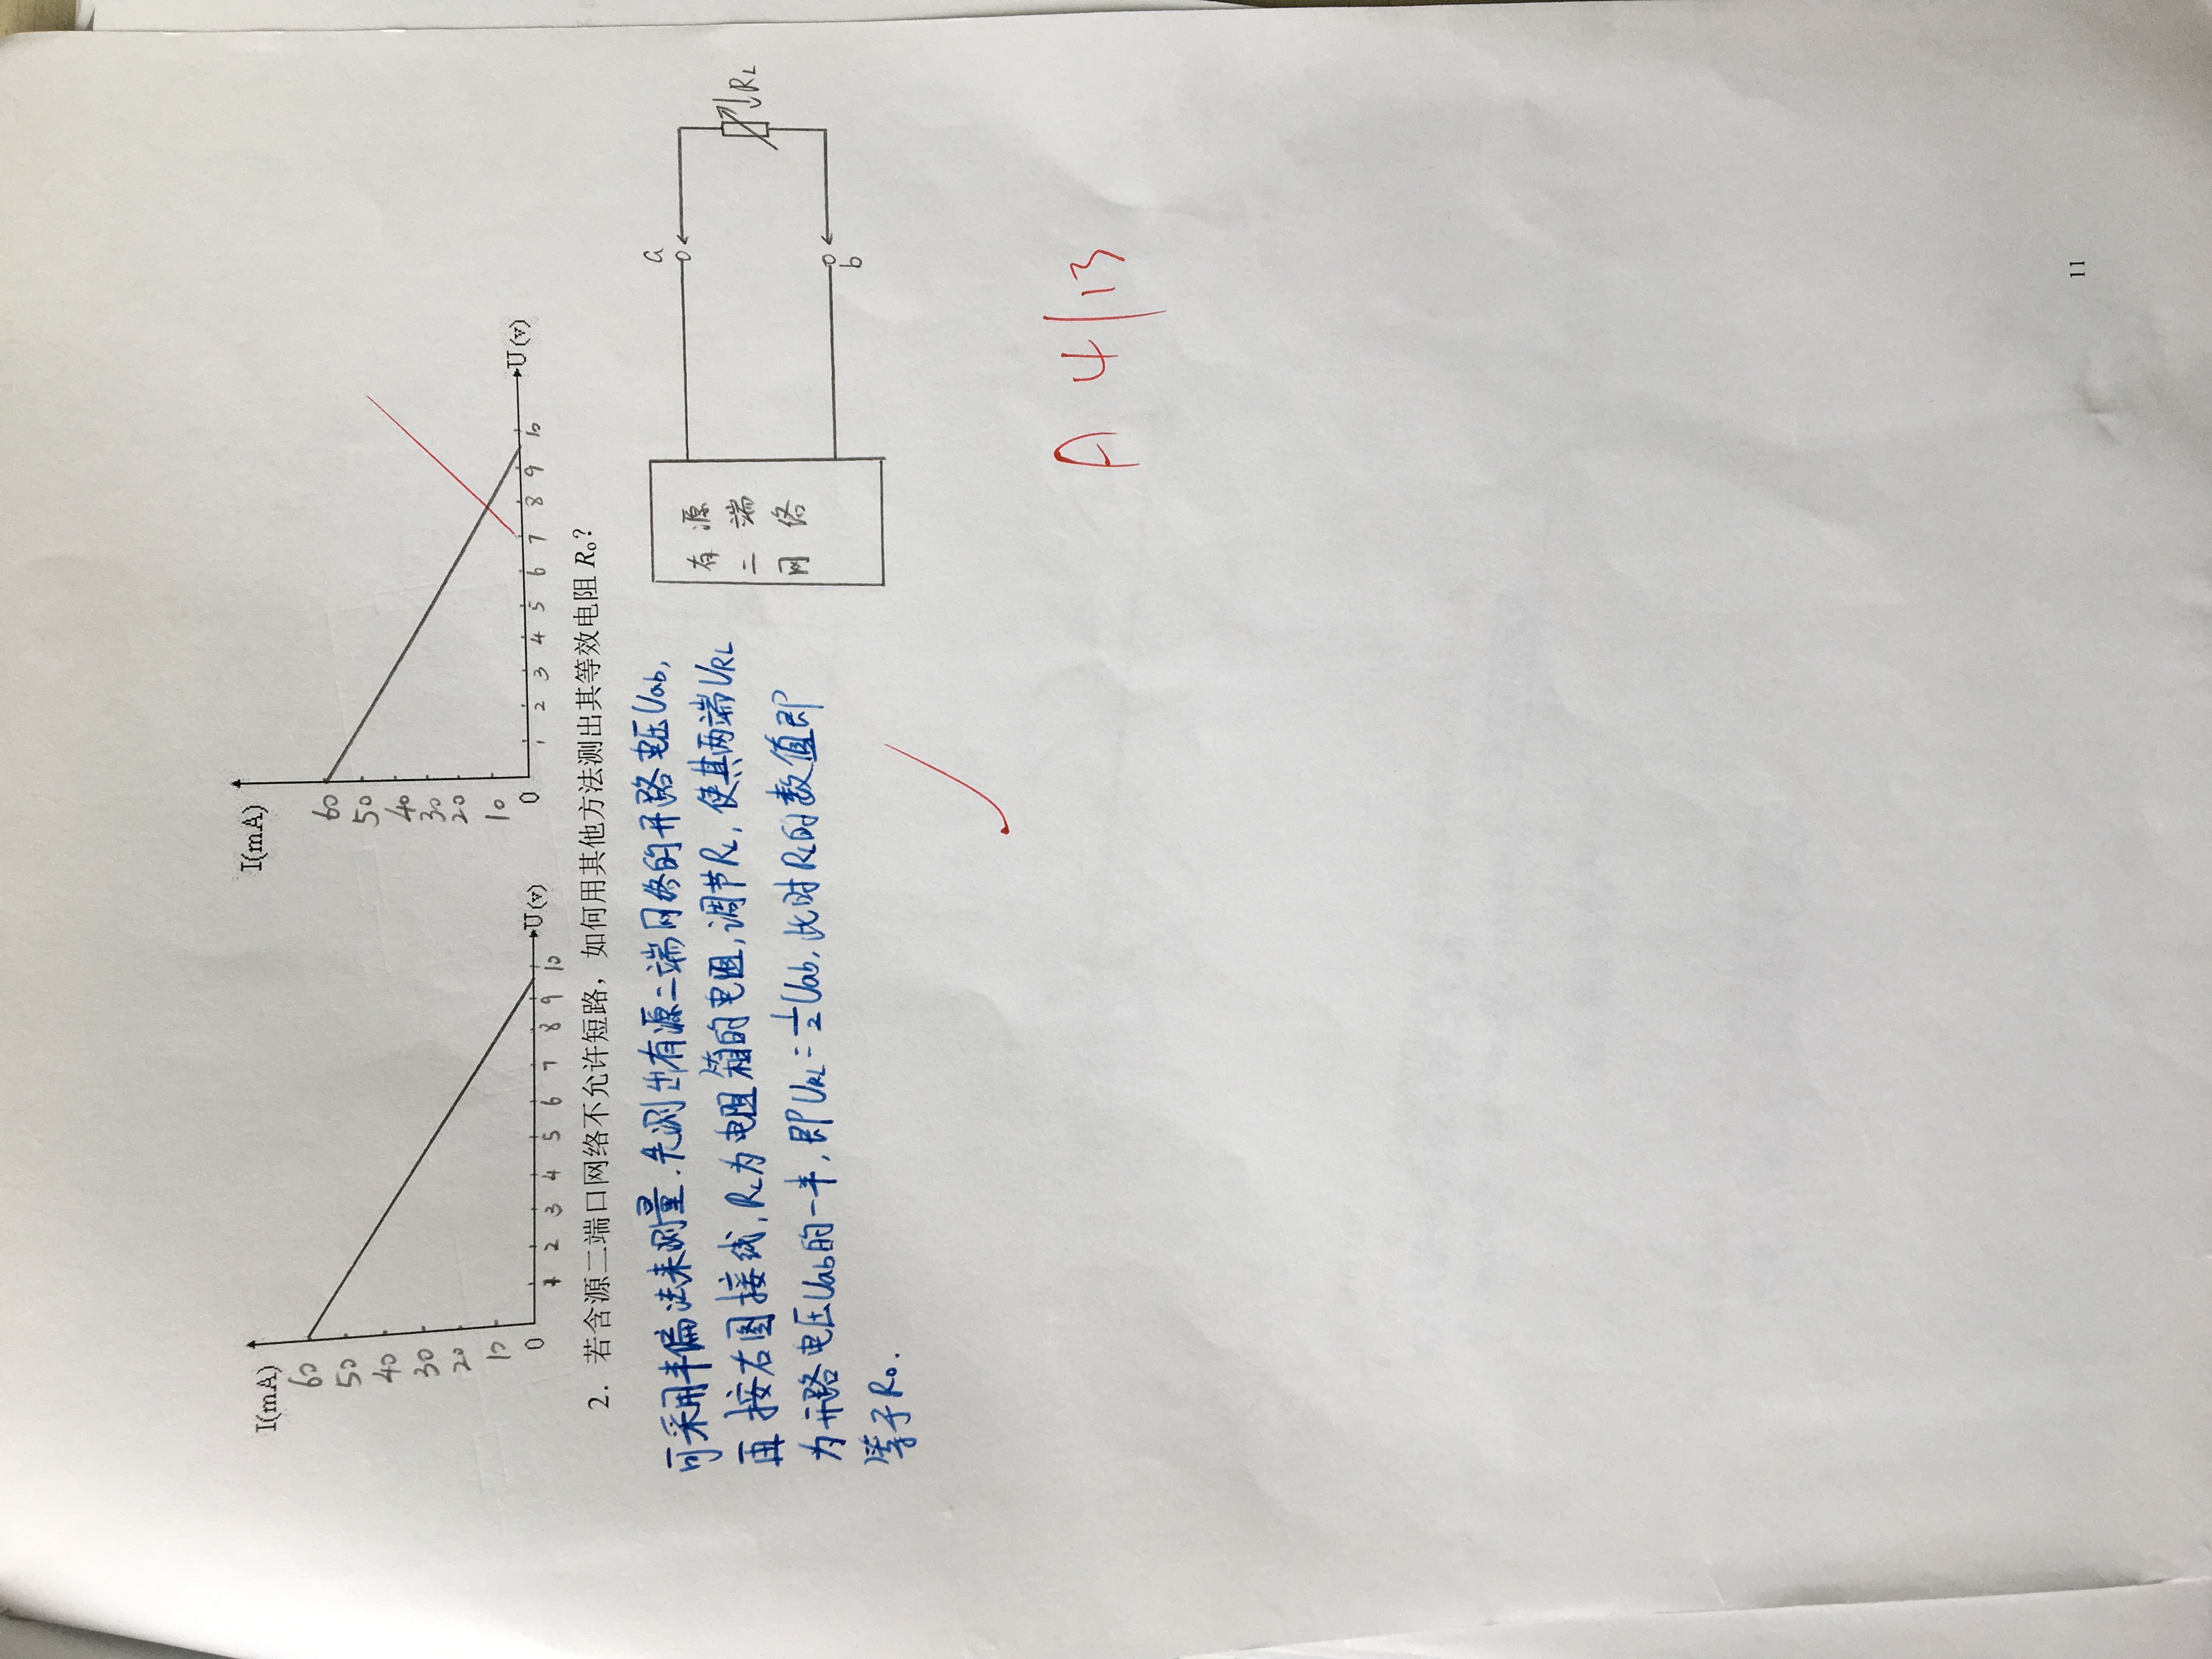 I(mA)
60
50
40
30
20
10
0
1 2 3 4 5 6 7 8 9 10
U(v)
I(mA)
60
50
40
30
20
10
0
1 2 3 4 5 6 7 8 9 10
U(v)
2. 若含源二端口网络不允许短路，如何用其他方法测出其等效电阻 R₀？
可采用半偏法来测量.先测出有源二端网络的开路电压Uab，
再按右图接线,RL为电阻箱的电阻,调节RL,使其两端URL
为开路电压Uab的一半,即URL=½Uab,此时RL的数值即
等于R₀.
有源
二端
网络
a
b
RL
A 4/13
11